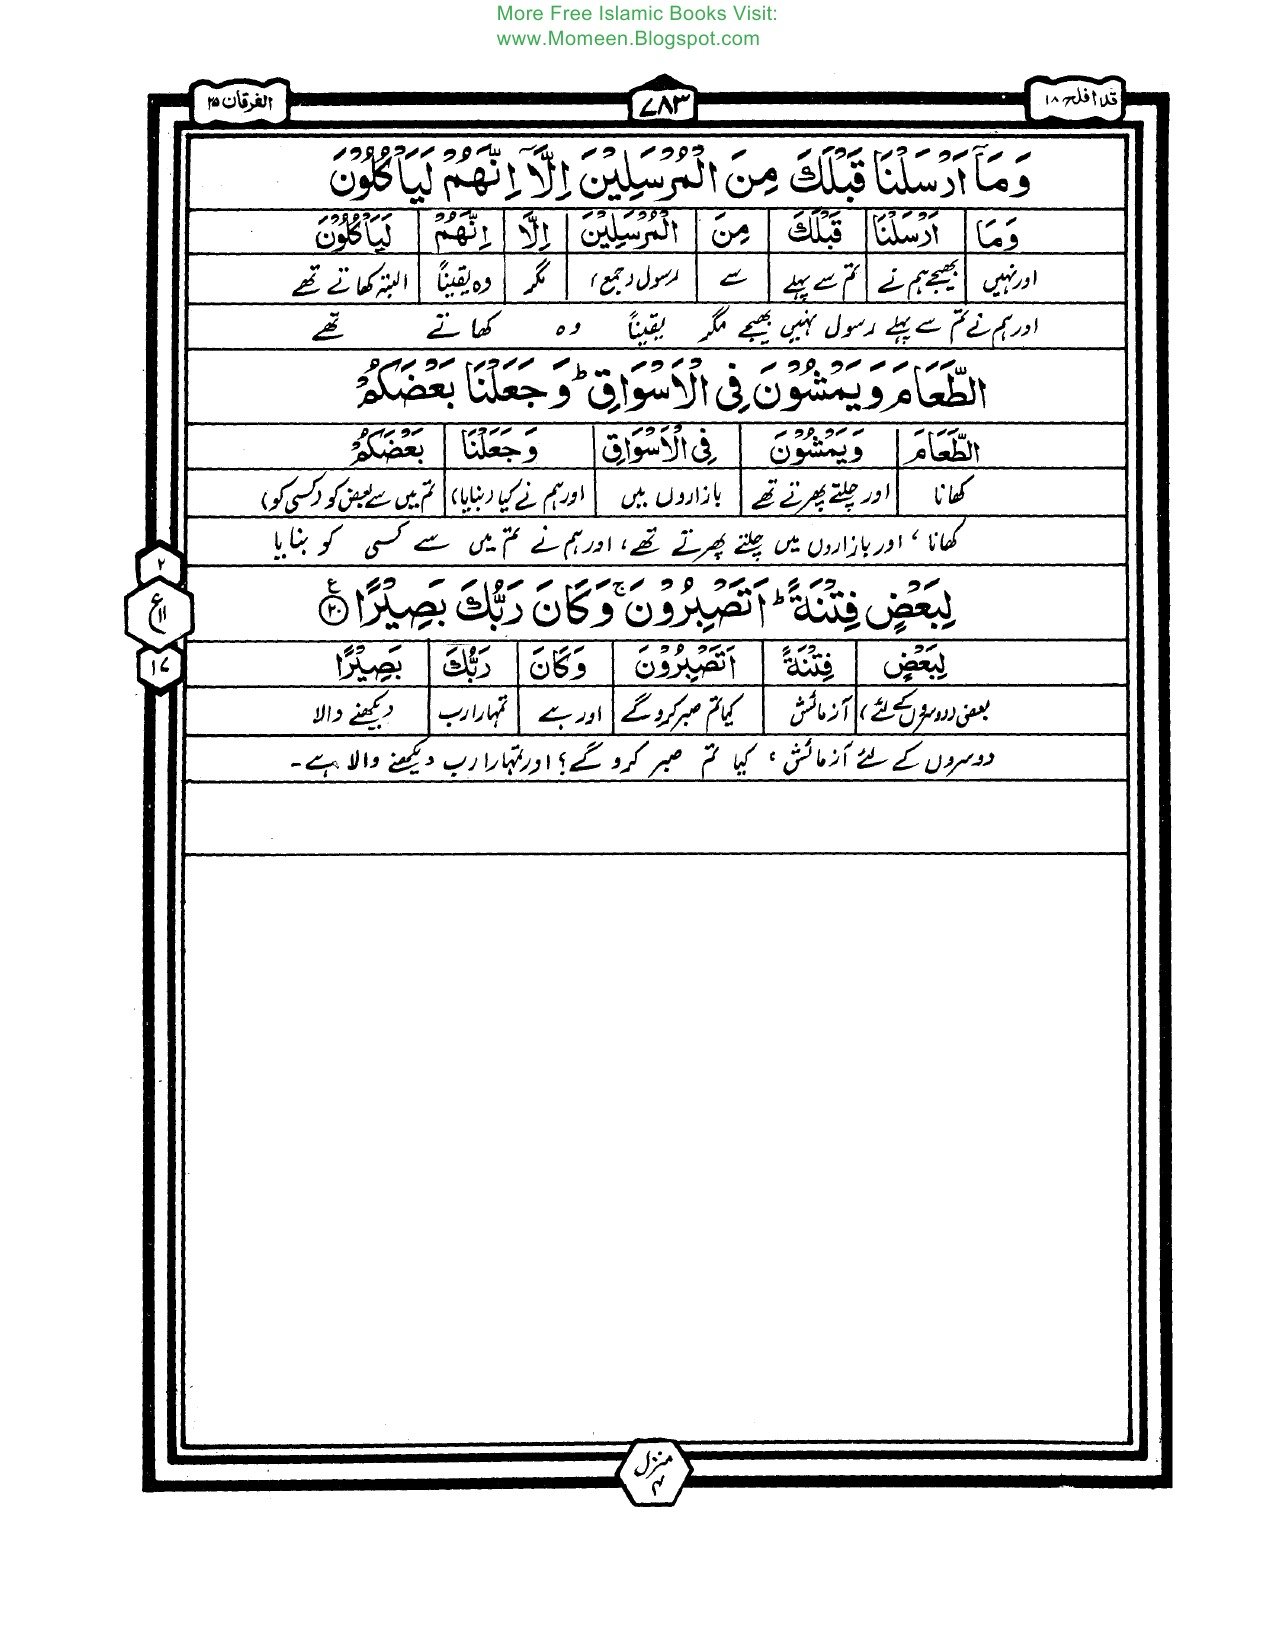 More Free Islamic Books Visit:
www.Momeen.Blogspot.com
قد افلح ۱۸
۷۸۳
الفرقان ۲۵
وَمَآ اَرْسَلْنَا قَبْلَكَ مِنَ الْمُرْسَلِيْنَ اِلَّآ اِنَّهُمْ لَيَاْكُلُوْنَ
وَمَا اَرْسَلْنَا قَبْلَكَ مِنَ الْمُرْسَلِيْنَ اِلَّا اِنَّهُمْ لَيَاْكُلُوْنَ
اور نہیں بھیجے ہم نے تم سے پہلے سے رسول (جمع) مگر وہ یقیناً البتہ کھاتے تھے
اور ہم نے تم سے پہلے رسول نہیں بھیجے مگر یقیناً وہ کھاتے تھے
الطَّعَامَ وَيَمْشُوْنَ فِى الْاَسْوَاقِ ؕ وَجَعَلْنَا بَعْضَكُمْ
الطَّعَامَ وَيَمْشُوْنَ فِى الْاَسْوَاقِ وَجَعَلْنَا بَعْضَكُمْ
کھانا اور چلتے پھرتے تھے بازاروں میں اور ہم نے کیا (بنایا) تم میں سے بعض کو (کسی کو)
کھانا، اور بازاروں میں چلتے پھرتے تھے، اور ہم نے تم میں سے کسی کو بنایا
لِبَعْضٍ فِتْنَةً ؕ اَتَصْبِرُوْنَ ۚ وَكَانَ رَبُّكَ بَصِيْرًا ﴿۲۰﴾ ع
لِبَعْضٍ فِتْنَةً اَتَصْبِرُوْنَ وَكَانَ رَبُّكَ بَصِيْرًا
بعض (دوسروں کے لئے) آزمائش کیا تم صبر کرو گے اور ہے تمہارا رب دیکھنے والا
دوسروں کے لئے آزمائش، کیا تم صبر کرو گے؟ اور تمہارا رب دیکھنے والا ہے۔
۲
ع ۱۱
۱۷
منزل ۴